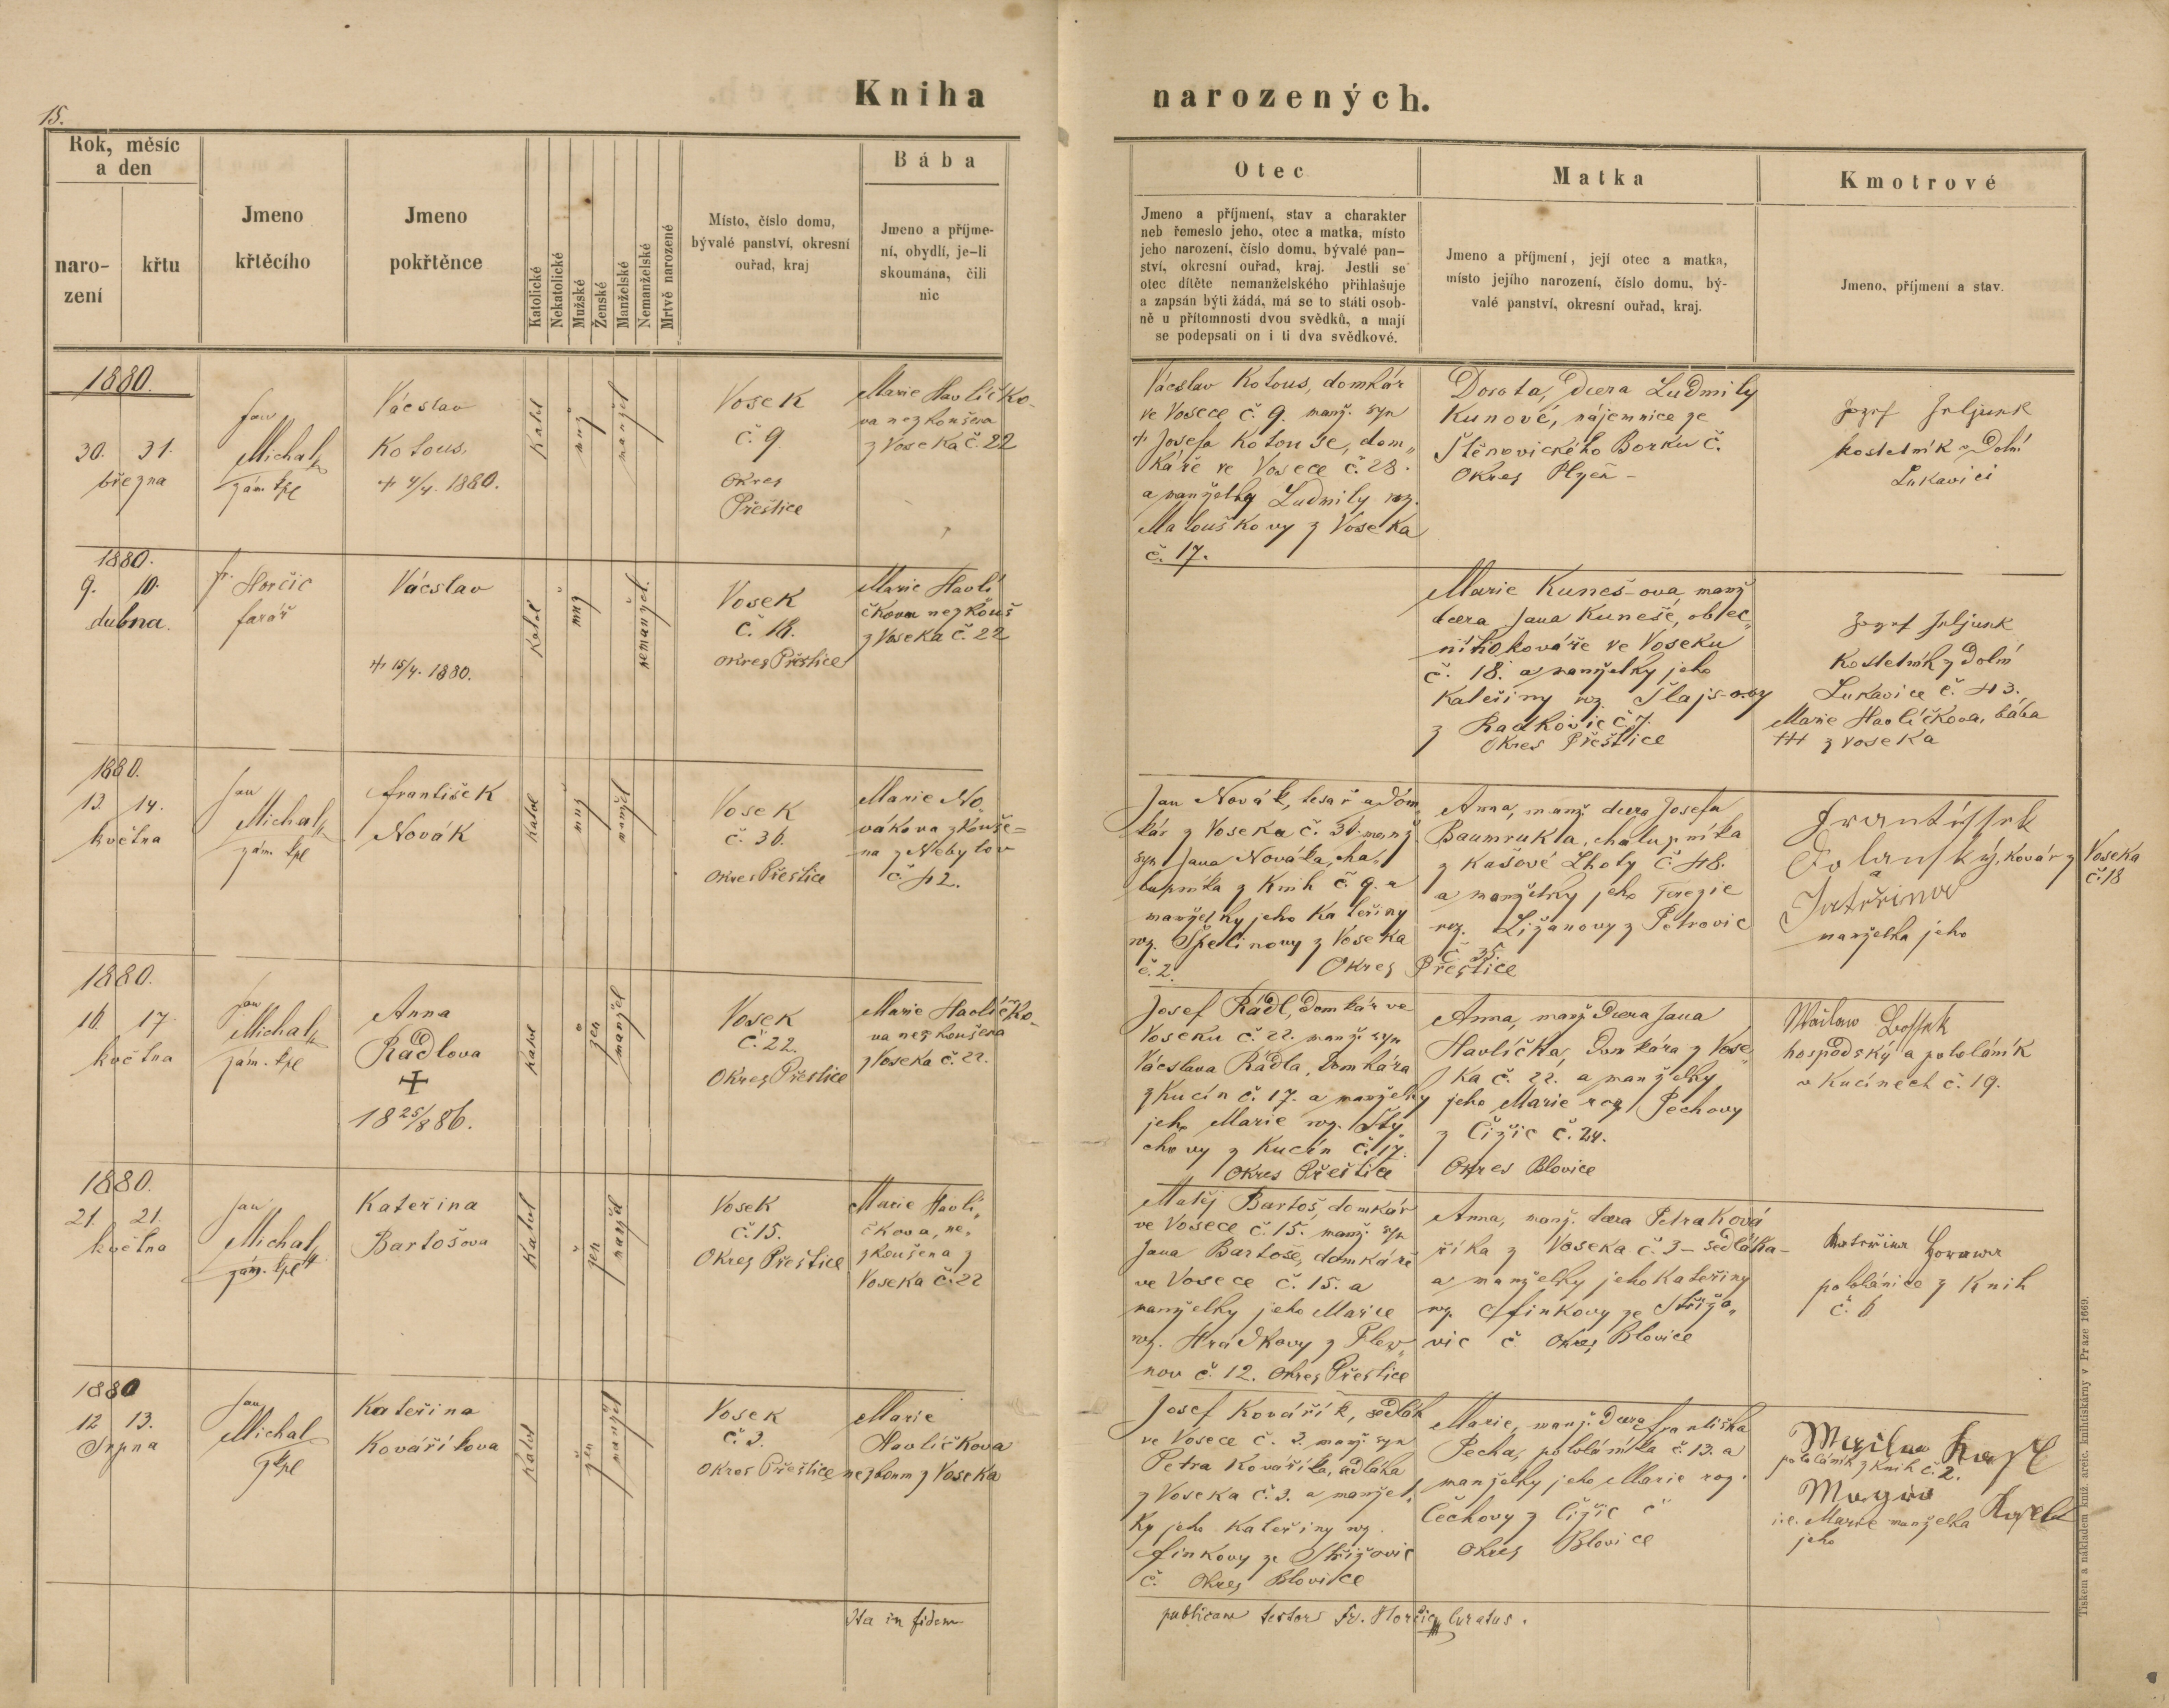 15.
Kniha narozených.
Rok, měsíc
a den
naro-
zení
křtu
Jmeno
křtěcího
Jmeno
pokřtěnce
Katolické
Nekatolické
Mužské
Ženské
Manželské
Nemanželské
Mrtvě narozené
Místo, číslo domu,
bývalé panství, okresní
ouřad, kraj
Bába
Jmeno a příjme-
ní, obydlí, je-li
skoumána, čili
nic
Otec
Jmeno a příjmení, stav a charakter
neb řemeslo jeho, otec a matka, místo
jeho narození, číslo domu, bývalé pan-
ství, okresní ouřad, kraj. Jestli se
otec dítěte nemanželského přihlašuje
a zapsán býti žádá, má se to státi osob-
ně u přítomnosti dvou svědků, a mají
se podepsati on i ti dva svědkové.
Matka
Jmeno a příjmení, její otec a matka,
místo jejího narození, číslo domu, bý-
valé panství, okresní ouřad, kraj.
Kmotrové
Jmeno, příjmení a stav.
1880.
30. 31.
března
Jan
Michal
zám. kpl
Vácslav
Kotous.
+ 4/4. 1880.
Katol
muž
manžel
Vosek
č. 9
Okres
Přeštice
Marie Havlíčko-
va nezkoušena
z Voseka č. 22
Vácslav Kotous, domkář
ve Vosece č. 9. manž. syn
+ Josefa Kotouse, dom„
káře ve Vosece č. 28.
a manželky Ludmily roz.
Matouškovy z Voseka
č. 17.
Dorota, dcera Ludmily
Kunové, nájemnice ze
Štěnovického Borku č.
Okres Plzeň -
Jozef
kostelník v Dolní
Lukavici
1880.
9. 10.
dubna.
Fr. Horčic
farář
Vácslav
+ 15/4. 1880.
Katol
muž
nemanžel.
Vosek
č. 18.
okres Přeštice
Marie Havlí
čkova nezkouš
z Voseka č. 22
Marie Kuneš-ova, manž
dcera Jana Kuneše, obec„
ního kováře ve Voseku
č. 18. a manželky jeho
Kateřiny roz. Šlajs-ovy
z Radkovic č 7.
Okres Přeštice
Jozef
Kostelník z Dolní
Lukavice č. 43.
Marie Havlíčkova, bába
+++ z Voseka
1880.
13. 14.
května
Jan
Michal
zám. kpl
František
Novák
Katol
muž
manžel
Vosek
č. 36.
Okres Přeštice
Marie No
vákova zkouše=
na z Nebylov
č. 42.
Jan Novák, tesař a dom„
kář z Voseka č. 36. manž
syn Jana Nováka, cha„
lupníka z Knih č. 9. a
manželky jeho Kateřiny
roz. Špelinovy z Voseka
č. 2. Okres Přeštice
Anna, manž. dcera Josefa
Baumrukla, chalupníka
z Kašové Lhoty č 48.
a manželky jeho Terezie
roz. Ližanovy z Petrovic
č. 35.
kovář z Voseka
č. 18
a
manželka jeho
1880.
16. 17.
května
Jan
Michal
zám. kpl
Anna
Rádlova
+
18 25/8 86.
Katol
žen
manžel
Vosek
č. 22.
Okres Přeštice
Marie Havlíčko-
va nezkoušena
z Voseka č. 22.
Josef Rádl, domkář ve
Voseku č. 22. manž. syn
Vácslava Rádla, domkáře
z Kucín č. 17. a manželky
jeho Marie roz. Šty
chovy z Kucín č. 17.
Okres Přeštice
Anna, manž dcera Jana
Havlíčka, domkáře z Vose„
ka č. 22. a manželky
jeho Marie roz Pechovy
z Čižic č. 24.
Okres Blovice
hospodský a pololáník
v Kucínech č. 19.
1880.
21. 21.
května
Jan
Michal
zám. kpl
Kateřina
Bartošova
Katol
žen
manžel
Vosek
č. 15.
Okres Přeštice
Marie Havlí„
čkova, ne„
zkoušena z
Voseka č. 22
Matěj Bartoš, domkář
ve Vosece č. 15. manž. syn
Jana Bartoše, domkáře
ve Vosece č. 15. a
manželky jeho Marie
roz. Hrádkovy z Plev„
nov č. 12. Okres Přeštice
Anna, manž. dcera Petra Ková
říka z Voseka č. 3 - sedláka -
a manželky jeho Kateřiny
roz. Finkovy ze Střížo„
vic č. Okres Blovice
pololánice z Knih
č. 6
1880
12 13.
Srpna
Jan
Michal
kpl
Kateřina
Kováříkova
Katol
žen
manžel
Vosek
č. 3.
Okres Přeštice
Marie
Havlíčkova
nezkoum z Voseka
Josef Kovářík, sedlák
ve Vosece č. 3. manž. syn
Petra Kováříka, sedláka
z Voseka č. 3. a manžel„
ky jeho Kateřiny roz.
Finkovy ze Střížovic
č. Okres Blovice
Marie, manž. dcera Františka
Pecha, pololáníka č. 13. a
manželky jeho Marie roz.
Čechovy z Čižic č
Okres Blovice
pololáník z Knih č. 2.
i.e. Marie manželka
jeho
Ita in fidem
publicam testor Fr. Horčic Curatus.
Tiskem a nákladem kníž. arcib. knihtiskárny v Praze 1669.